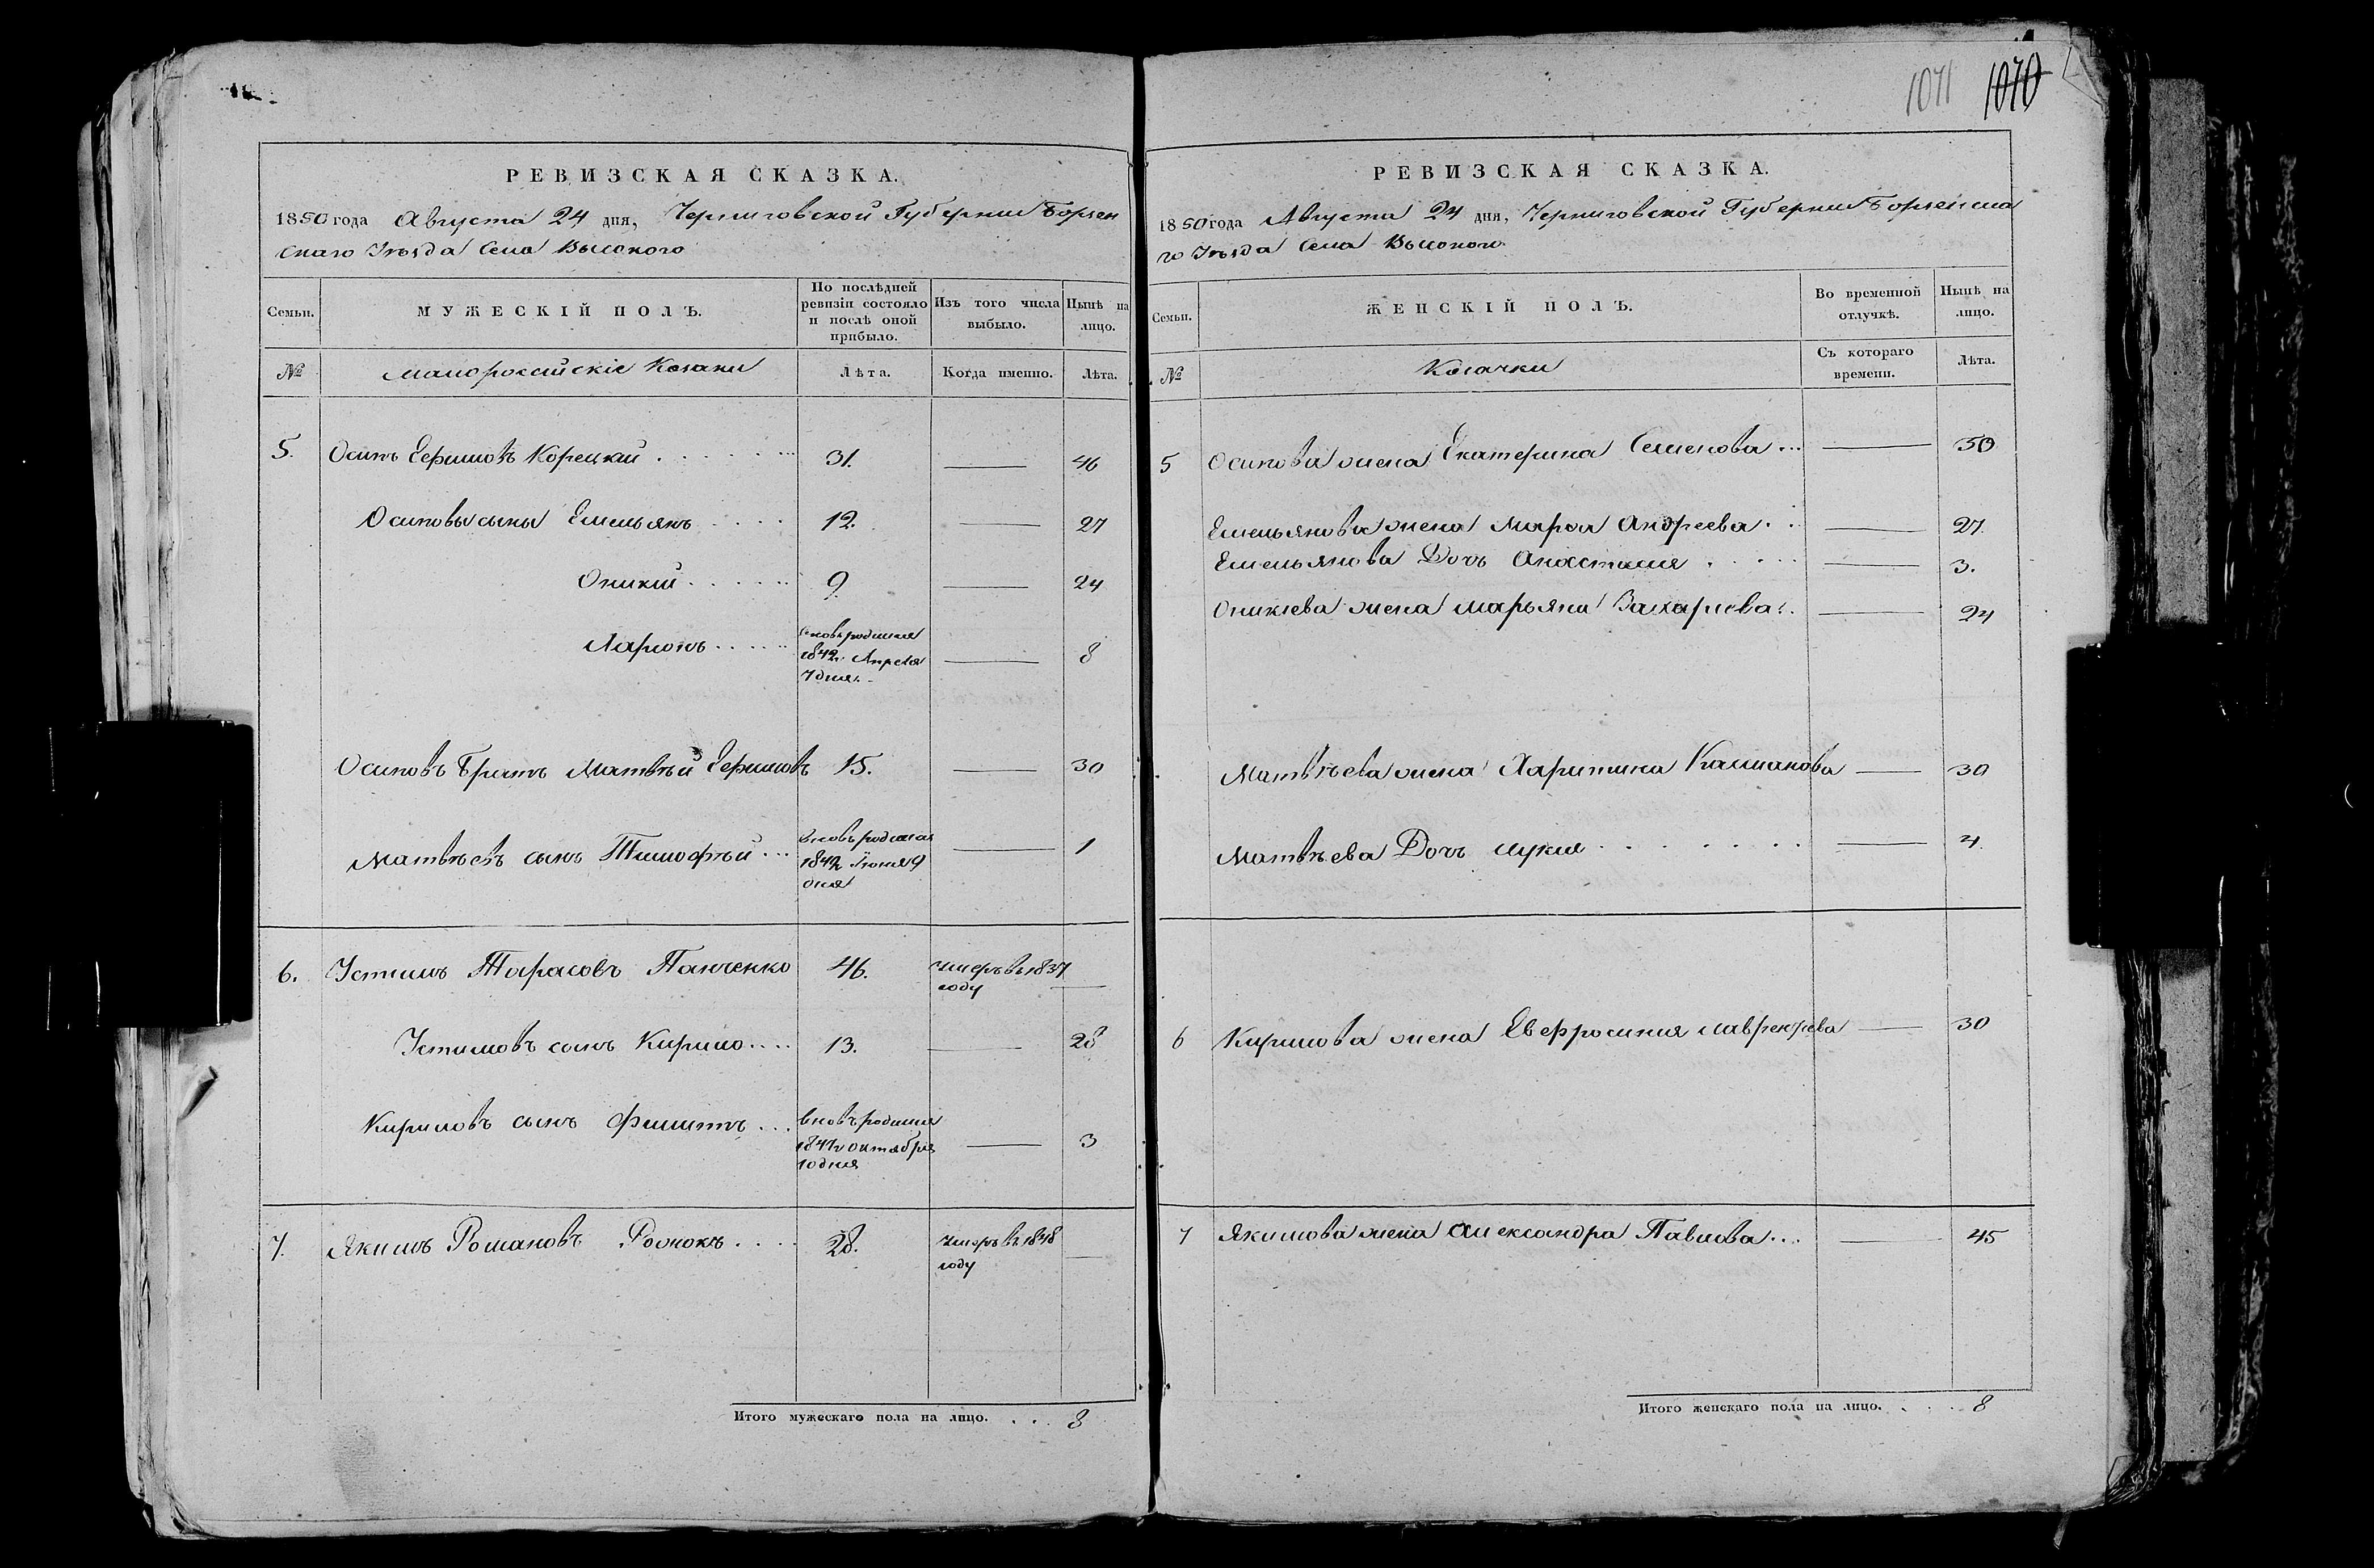 1071 1070
РЕВИЗСКАЯ СКАЗКА.
1850 года Августа 24 дня, Черниговской Губернии Борзен
скаго Уѣзда Села Высокого
Семьи.
МУЖЕСКІЙ ПОЛЪ.
По послѣдней
ревизіи состояло
и послѣ оной
прибыло.
Изъ того числа
выбыло.
Нынѣ на
лицо.
№
малороссійскіе Козаки
Лѣта.
Когда именно.
Лѣта.
5. Осипъ Ефимовъ Корецкій 31. 46
Осиповы сыны Емельянъ 12. 27
Оникій 9 24
Ларіонъ
вновь родился
1842г. Апреля
7 дня.
8
Осиповъ братъ Матвѣй Ефимовъ 15. 30
Матвѣевъ сынъ Тимофѣй
вновь родился
Іюня 9
дня
1
6. Устимъ Тарасовъ Панченко 46. умеръ въ 1837
году
Устимовъ сынъ Кирило 13. 28
Кириловъ сынъ Филипъ
вновь родился
октября
10 дня
3
7. Якимъ Романовъ 28. умеръ въ 1848
году
Итого мужескаго пола на лицо. . . . 8
РЕВИЗСКАЯ СКАЗКА.
1850 года Августа 24 дня, Черниговской Губернии Борзенска
го Уѣзда Села Высокого
Семьи.
ЖЕНСКІЙ ПОЛЪ.
Во временной
отлучкѣ.
Нынѣ на
лицо.
№
Козачки
Съ котораго
времени.
Лѣта.
5 Осипова жена Екатерина Семенова 50
Емельянова жена Марфа Андреева 27.
Емельянова Дочь Анастасия 3.
Оникіева жена Марьяна Захаріева 24
Матвѣева жена Харитина Калмакова 30
Матвѣева Дочь Лукія 4.
6 Кирилова жена Евфросинія Лаврентіева 30
7 Якимова жена Александра Павлова 45
Итого женскаго пола на лицо. . . . 8